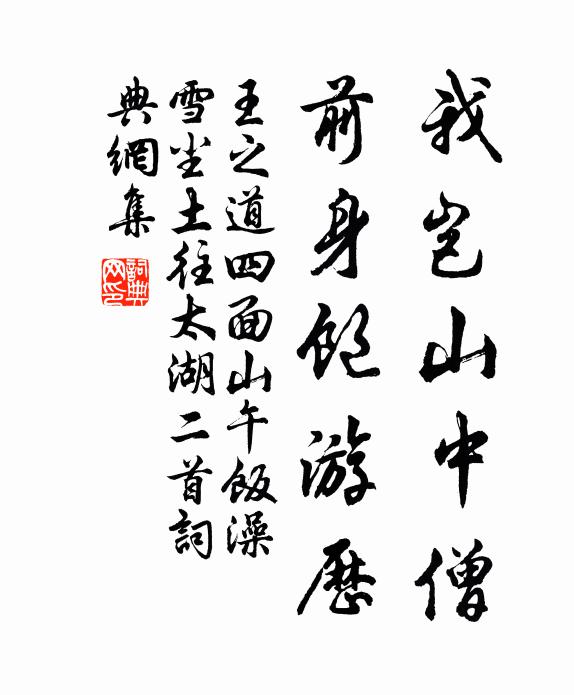 我岂山中僧
前身饱游历
王之道四面山午饭澡
雪尘土往太湖二首詞
典網集
詞典网印